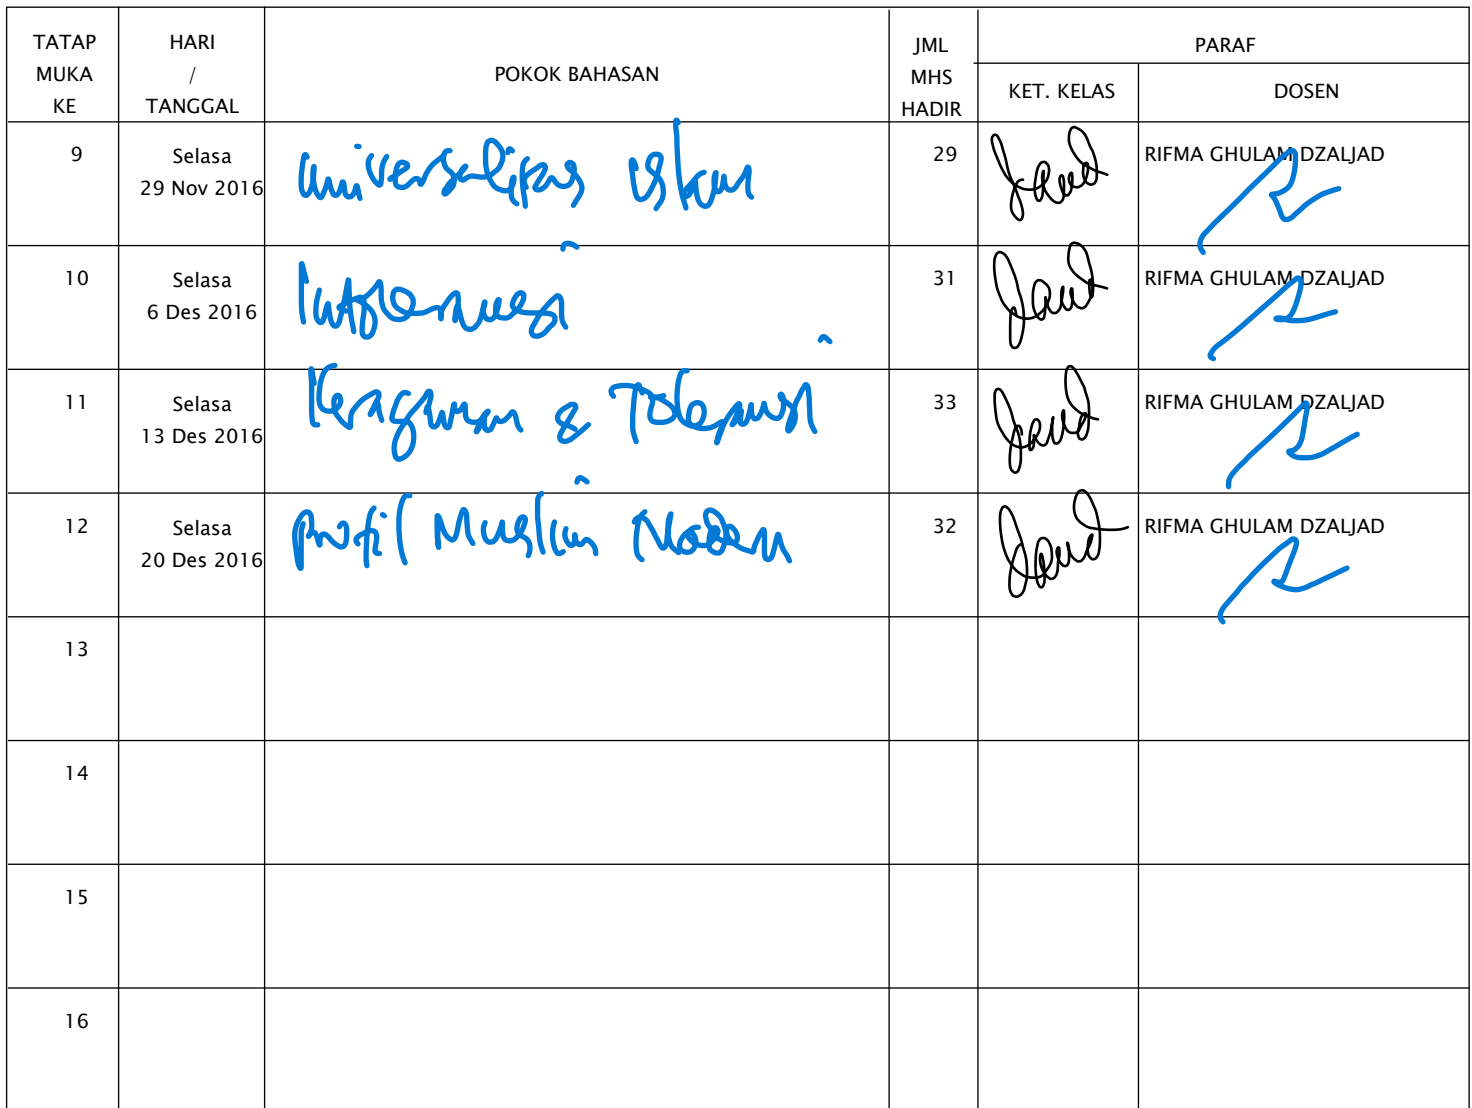 TATAP MUKA KE HARI / TANGGAL POKOK BAHASAN JML MHS HADIR PARAF
KET. KELAS DOSEN
9 Selasa 29 Nov 2016 Universalitas Islam 29 RIFMA GHULAM DZALJAD
10 Selasa 6 Des 2016 Intoleransi 31 RIFMA GHULAM DZALJAD
11 Selasa 13 Des 2016 Keragaman & Toleransi 33 RIFMA GHULAM DZALJAD
12 Selasa 20 Des 2016 Profil Muslim Modern 32 RIFMA GHULAM DZALJAD
13
14
15
16